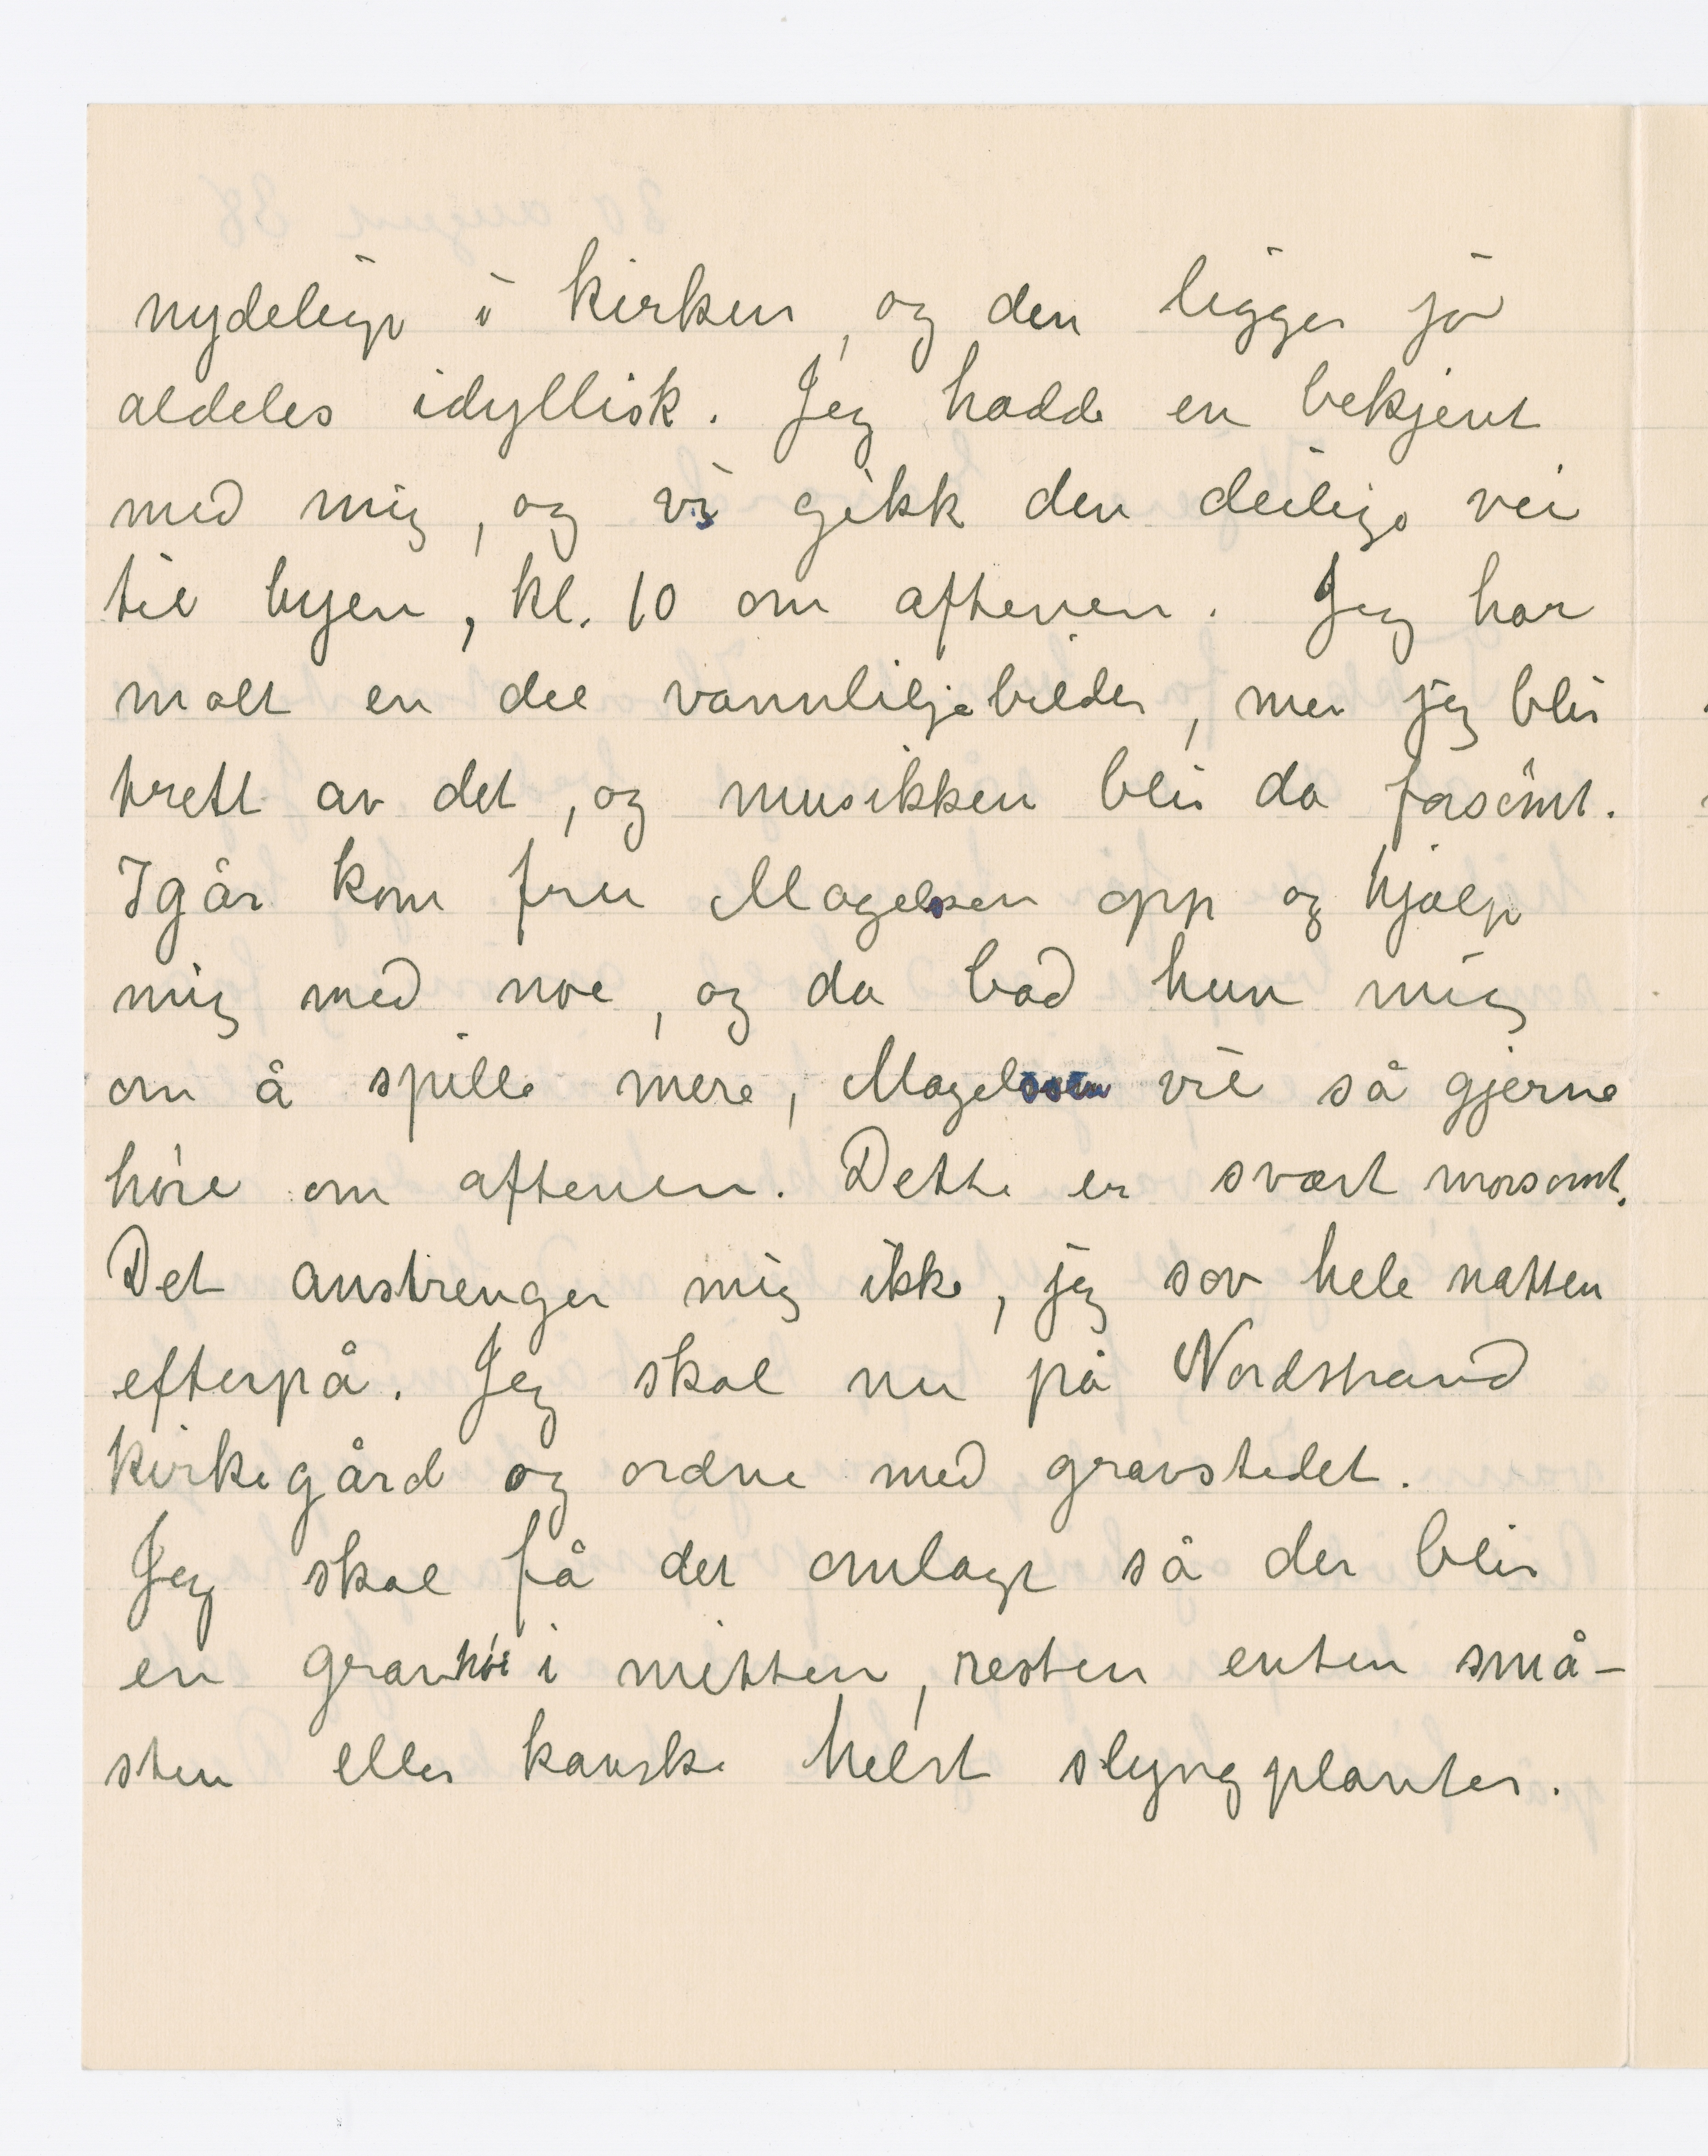 nydelig i kirken, og den ligger jo
aldeles idyllisk. Jeg hadde en bekjent
med mig, og vi gikk den deilige vei
til byen, kl. 10 om aftenen. Jeg har
malt en del vannliljebilder, men jeg blir
trett av det, og musikken blir da forsömt.
Igår kom fru Magelsen opp og hjalp
mig med noe, og da bad hun mig
om å spille mere, Magelssen vil så gjerne
höre om aftenen. Dette er svært morsomt.
Det anstrenger mig ikke, jeg sov hele natten
efterpå. Jeg skal nu på Nordstrand
kirkegård og ordne med gravstedet.
Jeg skal få det omlagt så der blir
en gravhöi i mitten, resten enten små-
sten eller kanske helst slyngplanter.